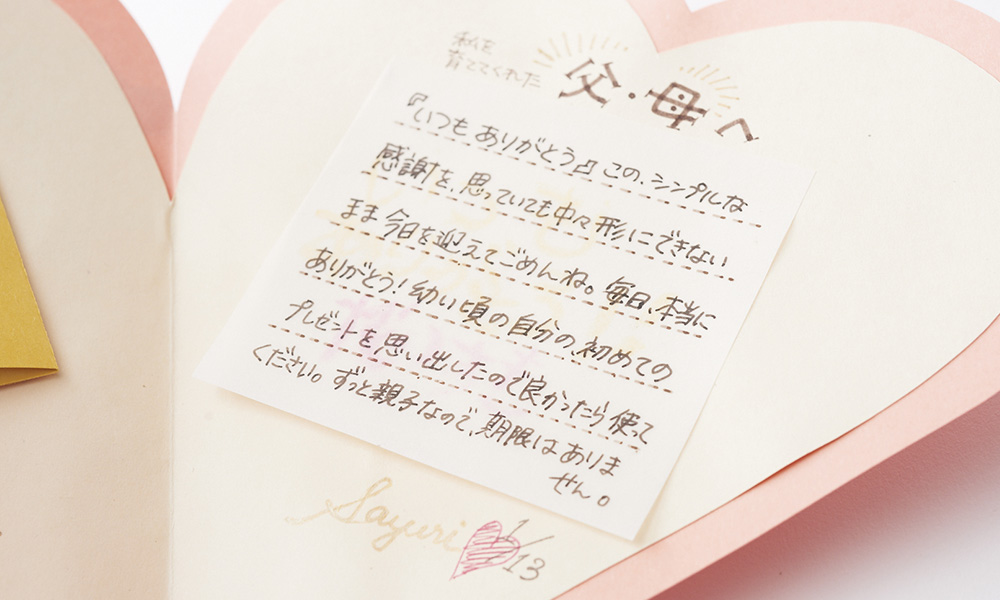 私を
育ててくれた
父・母へ
『いつも ありがとう』 この、シンプルな
感謝を、思っていても中々形にできない
まま 今日を迎えてごめんね。毎日、本当に
ありがとう！幼い頃の自分の、初めての
プレゼントを思い出したので良かったら使って
ください。ずっと親子なので、期限はありま
せん。
Sayuri
1/13